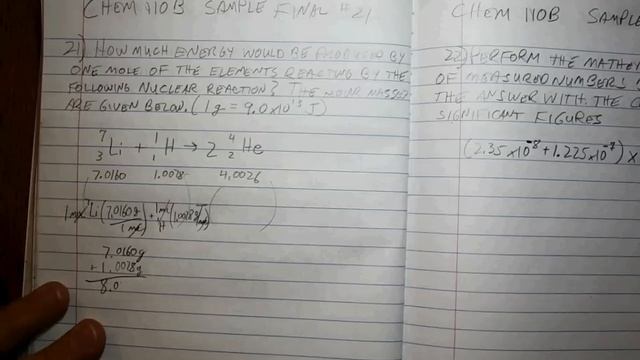 CHEM 110B SAMPLE FINAL #21
21) HOW MUCH ENERGY WOULD BE PRODUCED BY
ONE MOLE OF THE ELEMENTS REACTING BY THE
FOLLOWING NUCLEAR REACTION? THE MOLAR MASSES
ARE GIVEN BELOW. (1g = 9.0x10¹³ J)
⁷₃Li + ¹₁H → 2 ⁴₂He
7.0160 1.0078 4.0026
1 mol Li (7.0160g / 1 mol) + 1 mol H (1.0078g / mol) (
7.0160g
+ 1.0078g
8.0
CHEM 110B SAMPLE
22) PERFORM THE MATHE
OF MEASURED NUMBERS
THE ANSWER WITH THE C
SIGNIFICANT FIGURES
(2.35x10⁻⁸ + 1.225x10⁻⁷) x